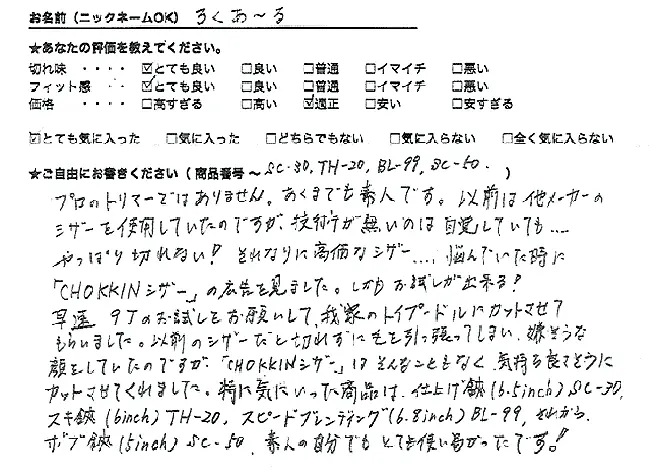 お名前（ニックネームOK） ろくあ〜る
★あなたの評価を教えてください。
切れ味 ・・・・ ☑とても良い □良い □普通 □イマイチ □悪い
フィット感 ・・・・ ☑とても良い □良い □普通 □イマイチ □悪い
価格 ・・・・ □高すぎる □高い ☑適正 □安い □安すぎる
☑とても気に入った □気に入った □どちらでもない □気に入らない □全く気に入らない
★ご自由にお書きください（商品番号〜SC-30, TH-20, BL-99, SC-50. ）
プロのトリマーではありません。あくまでも素人です。以前は他メーカーの
シザーを使用していたのですが、技術が無いのは自覚していても....
やっぱり切れない! それなりに高価なシザー....悩んでいた時に
「CHOKKINシザー」の広告を見ました。しかもお試しが出来る!
早速 9丁のお試しをお願いして、我家のトイプードルにカットさせて
もらいました。以前のシザーだと切れずに毛を引っ張ってしまい、嫌そうな
顔をしていたのですが、「CHOKKINシザー」はそんなこともなく、気持ち良さそうに
カットさせてくれました。特に気にいった商品は、仕上げ鋏(6.5inch)SC-30,
スキ鋏(6inch)TH-20, スピードブレンディング(6.8inch)BL-99, それから
ボブ鋏(5inch)SC-50. 素人の自分でもとても使い易かったです!